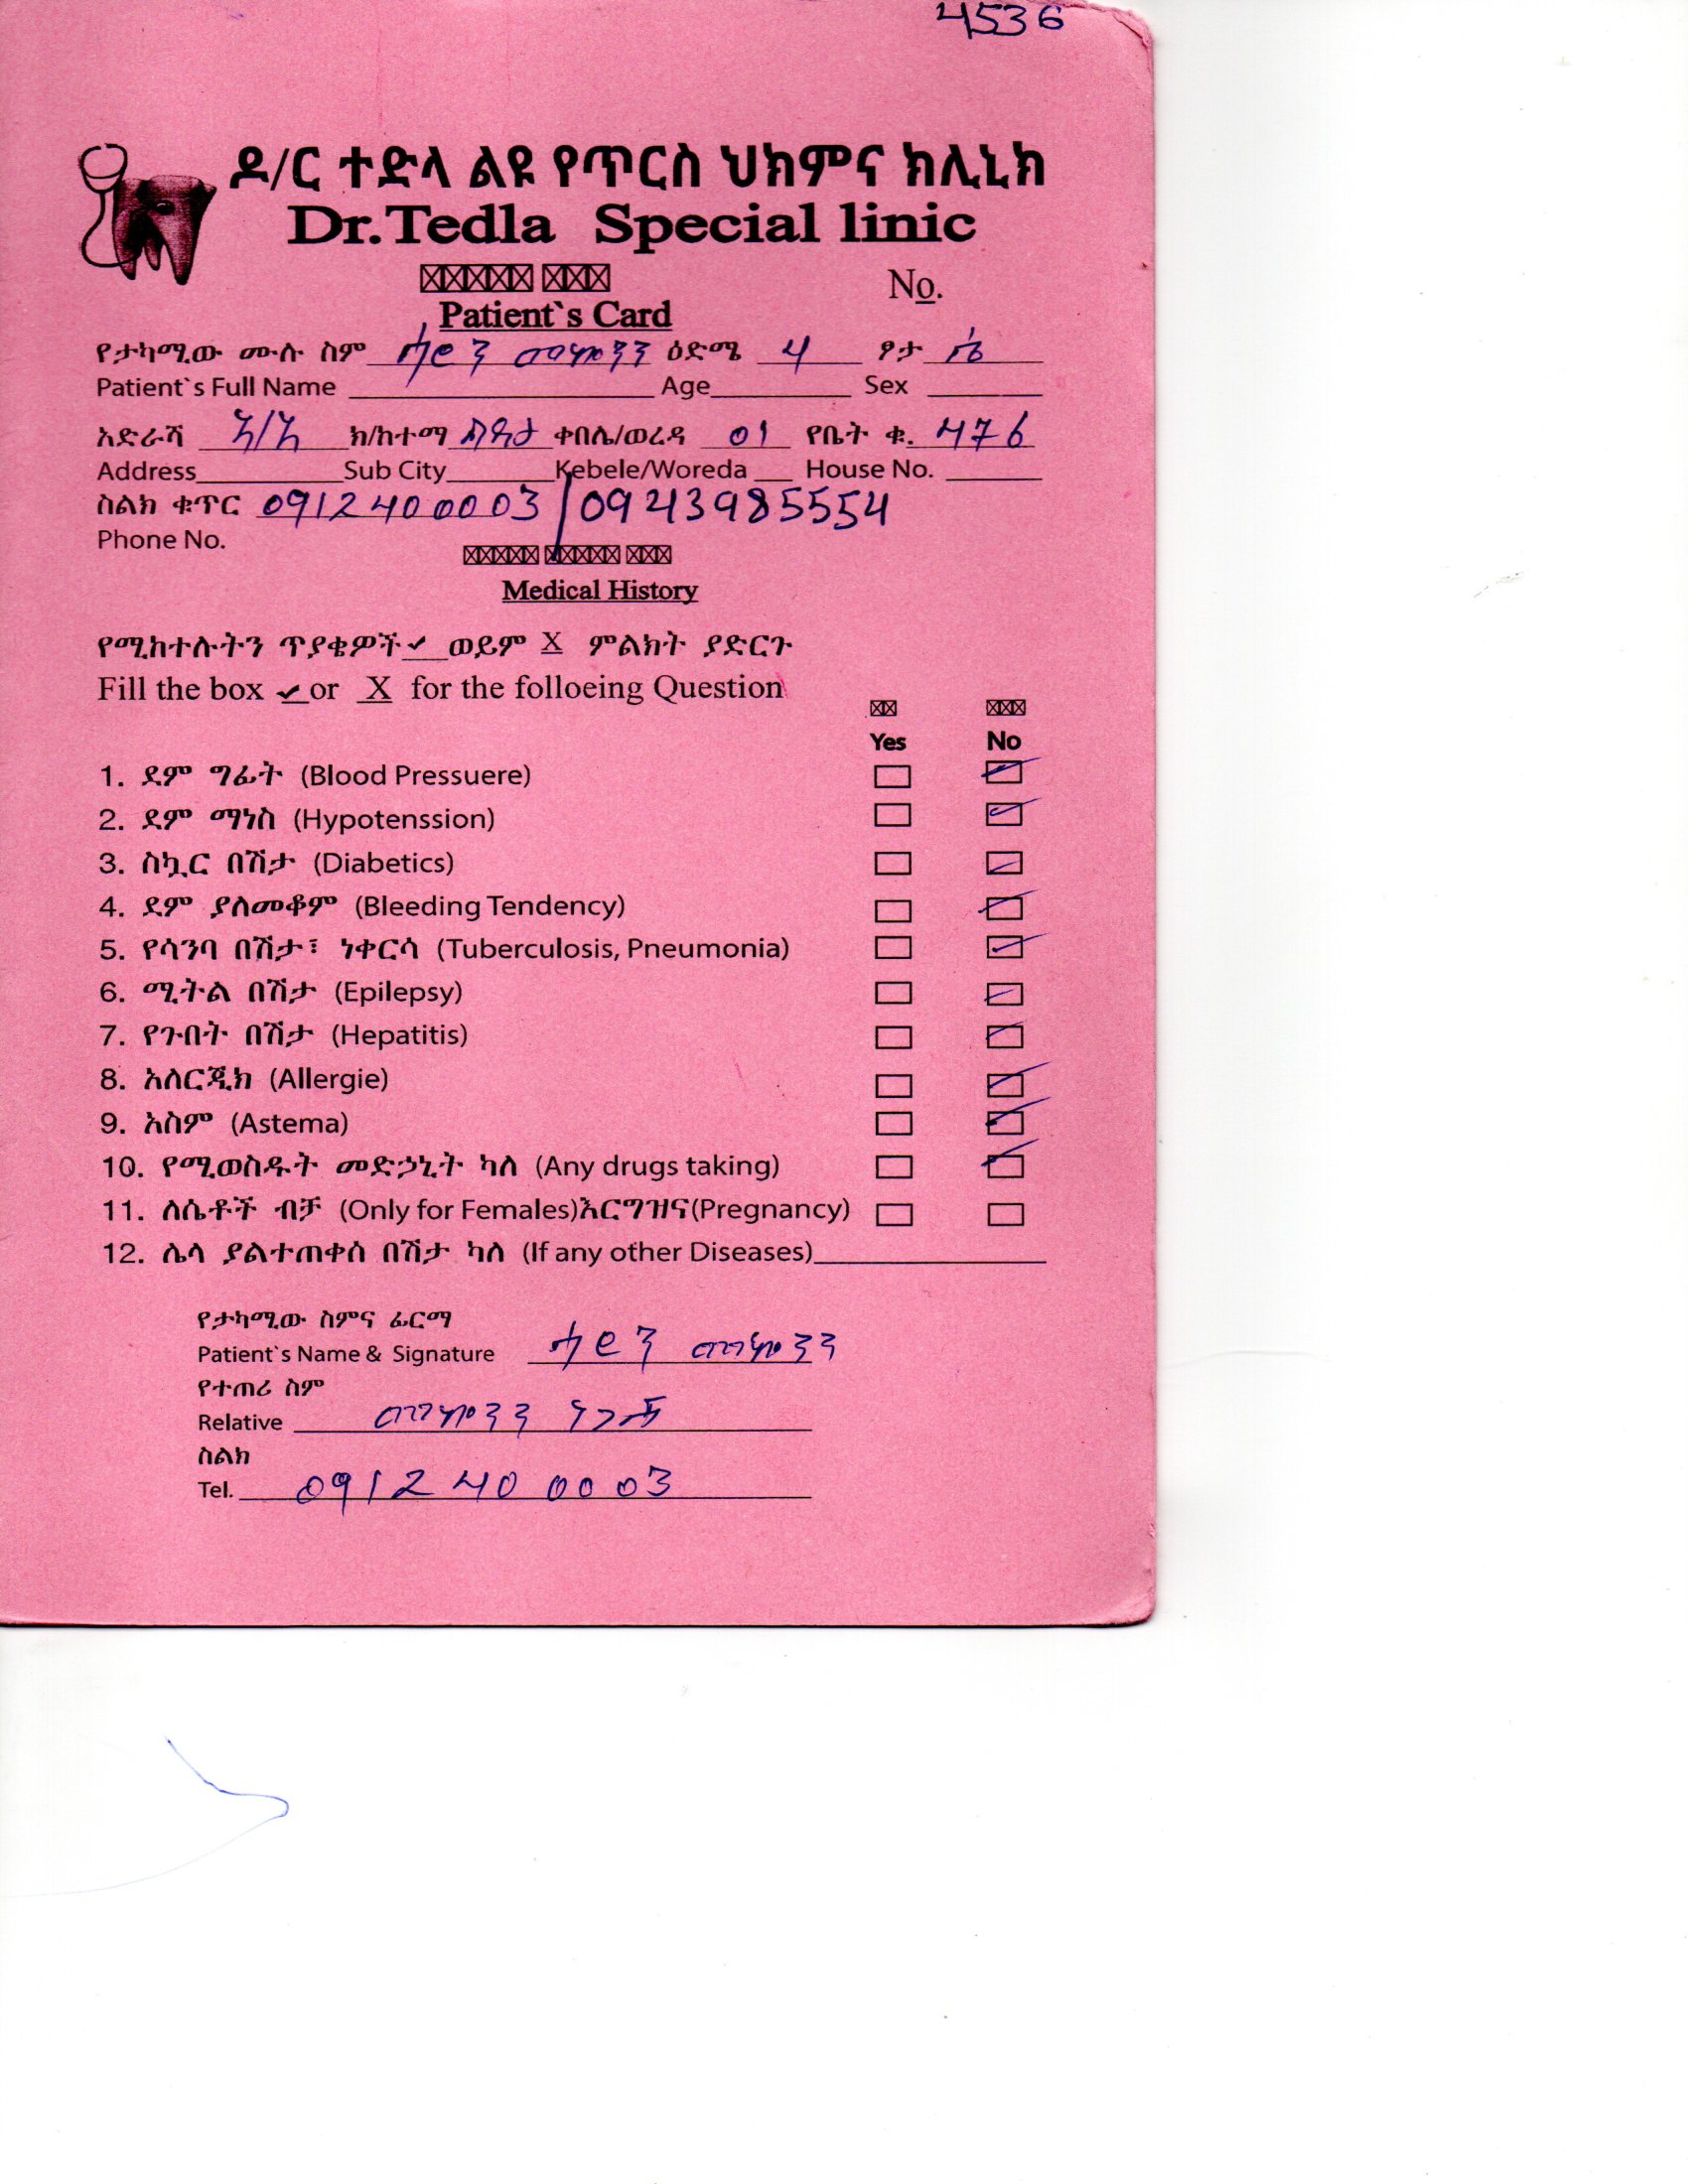 4536
ዶ/ር ተድላ ልዩ የጥርስ ህክምና ክሊኒክ
Dr.Tedla Special linic
No.
Patient`s Card
የታካሚው ሙሉ ስም ዕድሜ 4 ፆታ ሴ
Patient`s Full Name Age Sex
አድራሻ አ/አ ክ/ከተማ ልደታ ቀበሌ/ወረዳ 01 የቤት ቁ. 476
Address Sub City Kebele/Woreda House No.
ስልክ ቁጥር 0912400003/0943985554
Phone No.
Medical History
የሚከተሉትን ጥያቄዎች ✓ ወይም X ምልክት ያድርጉ
Fill the box ✓ or X for the folloeing Question
Yes No
1. ደም ግፊት (Blood Pressuere)
2. ደም ማነስ (Hypotenssion)
3. ስኳር በሽታ (Diabetics)
4. ደም ያለመቆም (Bleeding Tendency)
5. የሳንባ በሽታ፣ ነቀርሳ (Tuberculosis, Pneumonia)
6. ሚትል በሽታ (Epilepsy)
7. የጉበት በሽታ (Hepatitis)
8. አለርጂክ (Allergie)
9. አስም (Astema)
10. የሚወስዱት መድኃኒት ካለ (Any drugs taking)
11. ለሴቶች ብቻ (Only for Females)እርግዝና(Pregnancy)
12. ሌላ ያልተጠቀሰ በሽታ ካለ (If any other Diseases)
የታካሚው ስምና ፊርማ
Patient`s Name & Signature
የተጠሪ ስም
Relative
ስልክ
Tel. 0912 40 00 03